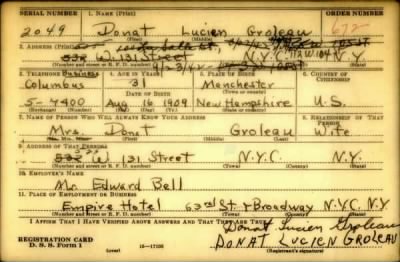 SERIAL NUMBER 1. NAME (Print) ORDER NUMBER
2049 Donat Lucien Groleau 672
(First) (Middle) (Last)
2. ADDRESS (Print)
532 W. 131 Street N.Y.C. N.Y.
(Number and street or R. F. D. number) (Town) (County) (State)
3. TELEPHONE Business 4. AGE IN YEARS 5. PLACE OF BIRTH 6. COUNTRY OF CITIZENSHIP
Columbus 31 Manchester
DATE OF BIRTH
5-7400 Aug 16 1909 New Hampshire U.S.
(Exchange) (Number) (Mo.) (Day) (Yr.) (State or country)
7. NAME OF PERSON WHO WILL ALWAYS KNOW YOUR ADDRESS 8. RELATIONSHIP OF THAT PERSON
Mrs. Donat Groleau Wife
(Mr., Mrs., Miss) (First) (Middle) (Last)
9. ADDRESS OF THAT PERSON
532 W. 131 Street N.Y.C. N.Y.
(Number and street or R. F. D. number) (Town) (County) (State)
10. EMPLOYER'S NAME
Mr. Edward Bell
11. PLACE OF EMPLOYMENT OR BUSINESS
Empire Hotel 63rd St & Broadway N.Y.C. N.Y.
(Number and street or R. F. D. number) (Town) (County) (State)
I AFFIRM THAT I HAVE VERIFIED ABOVE ANSWERS AND THAT THEY ARE TRUE.
Donat Lucien Groleau
REGISTRATION CARD
D. S. S. Form 1 (over) 16—17105 DONAT LUCIEN GROLEAU
(Registrant's signature)